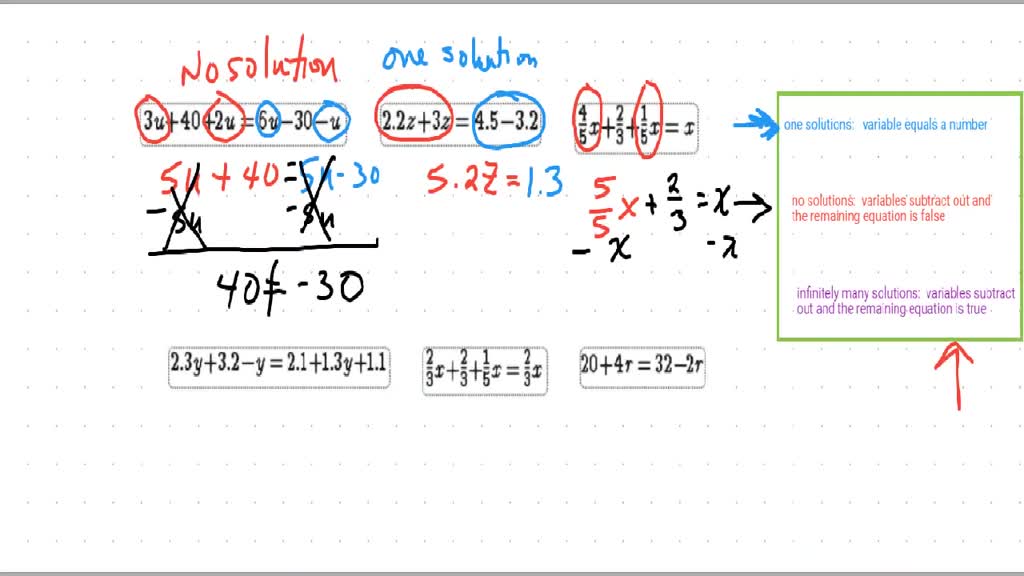 No solution
one solution
3u+40+2u = 6u-30-u
2.2z+3z = 4.5-3.2
4/5x+2/3+1/5x = x
one solutions: variable equals a number
5u + 40 = 5u - 30
5.2z = 1.3
5/5 x + 2/3 = x
no solutions: variables subtract out and
the remaining equation is false
- 5u - 5u
- x - x
40 ≠ - 30
infinitely many solutions: variables subtract
out and the remaining equation is true
2.3y+3.2-y = 2.1+1.3y+1.1
2/3x+2/3+1/5x = 2/3x
20+4r = 32-2r